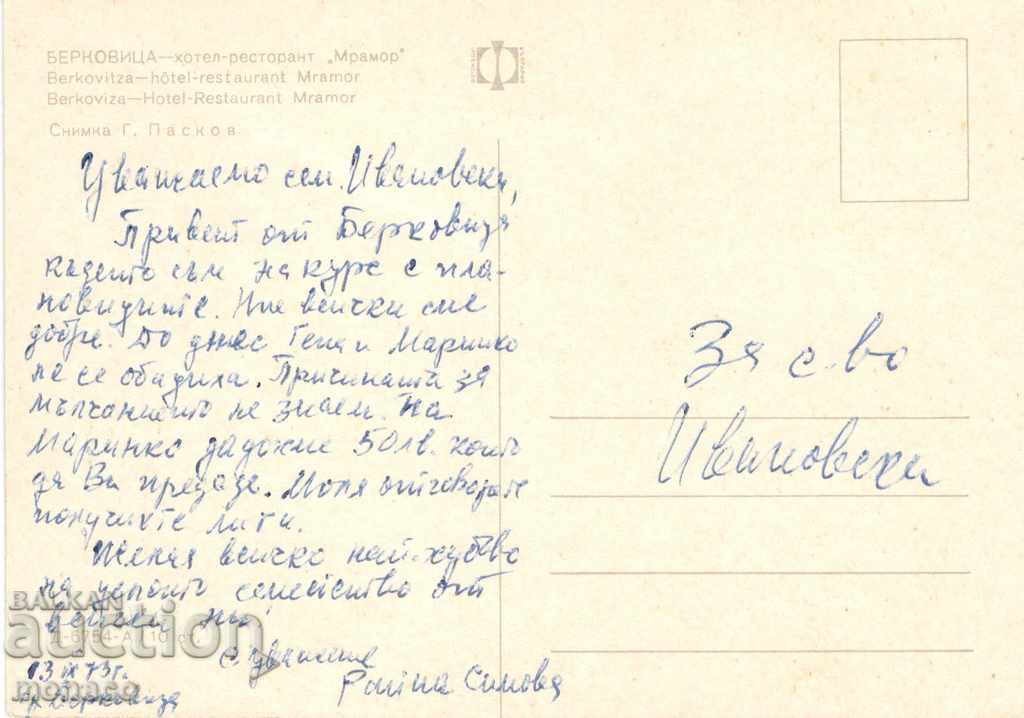 БЕРКОВИЦА—хотел-ресторант „Мрамор"
Berkovitza—hôtel-restaurant Mramor
Berkoviza—Hotel-Restaurant Mramor
Снимка Г. Пасков
Уважаемо сем. Ивановски,
Привет от Берковица
където съм на курс с пла-
новиците. Ние всички сме
добре. До днес Гена и Маринко
не се обадиха. Причината за
мълчанието не знаем. На
Маринко дадохме 50 лв. които
да Ви предаде. Моля отговорете
получихте ли ги.
Желая всичко най-хубаво
на цялото семейство от
всички ни
С уважение
Симова
13 IX 73 г.
гр. Берковица
Д-6754-А 10 ст.
За с-во
Ивановски
BALKAN
auction
monaco